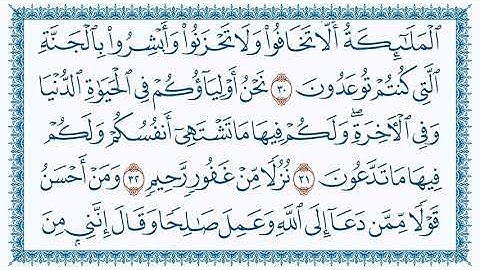 ٱلْمَلَٰٓئِكَةُ أَلَّا تَخَافُوا۟ وَلَا تَحْزَنُوا۟ وَأَبْشِرُوا۟ بِٱلْجَنَّةِ
ٱلَّتِى كُنتُمْ تُوعَدُونَ ٣٠ نَحْنُ أَوْلِيَآؤُكُمْ فِى ٱلْحَيَوٰةِ ٱلدُّنْيَا
وَفِى ٱلْءَاخِرَةِ ۖ وَلَكُمْ فِيهَا مَا تَشْتَهِىٓ أَنفُسُكُمْ وَلَكُمْ
فِيهَا مَا تَدَّعُونَ ٣١ نُزُلًا مِّنْ غَفُورٍ رَّحِيمٍ ٣٢ وَمَنْ أَحْسَنُ
قَوْلًا مِّمَّن دَعَآ إِلَى ٱللَّهِ وَعَمِلَ صَٰلِحًا وَقَالَ إِنَّنِى مِنَ